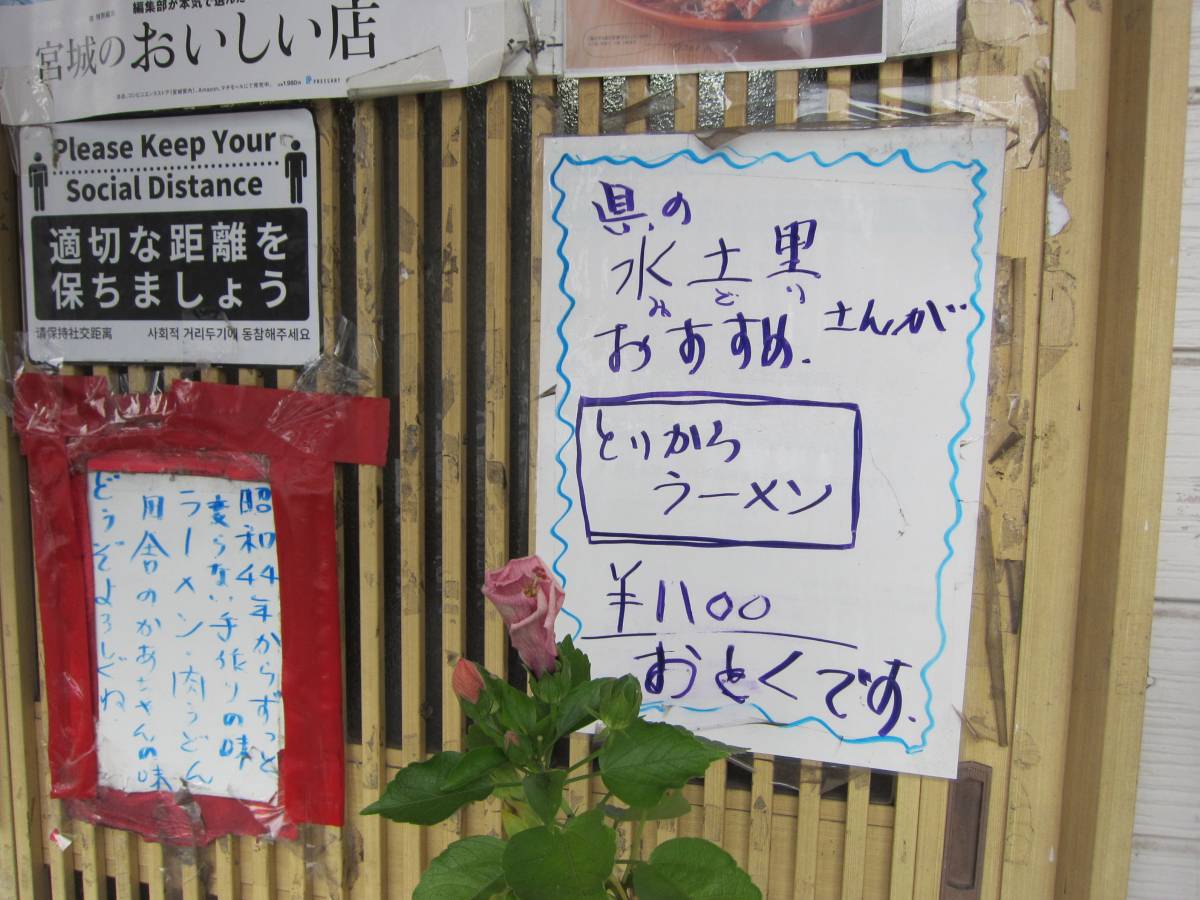 編集部が本気で選んだ
宮城のおいしい店
バスター
Please Keep Your
Social Distance
適切な距離を
保ちましょう
请保持社交距离 사회적 거리두기에 동참해주세요
県の
水土里
みどり
さんが
おすすめ.
とりから
ラーメン
¥1100
おとくです.
昭和44年からずっと
変らない手作りの味
ラーメン・肉うどん
田舎のかあさんの味
どうぞよろしくね